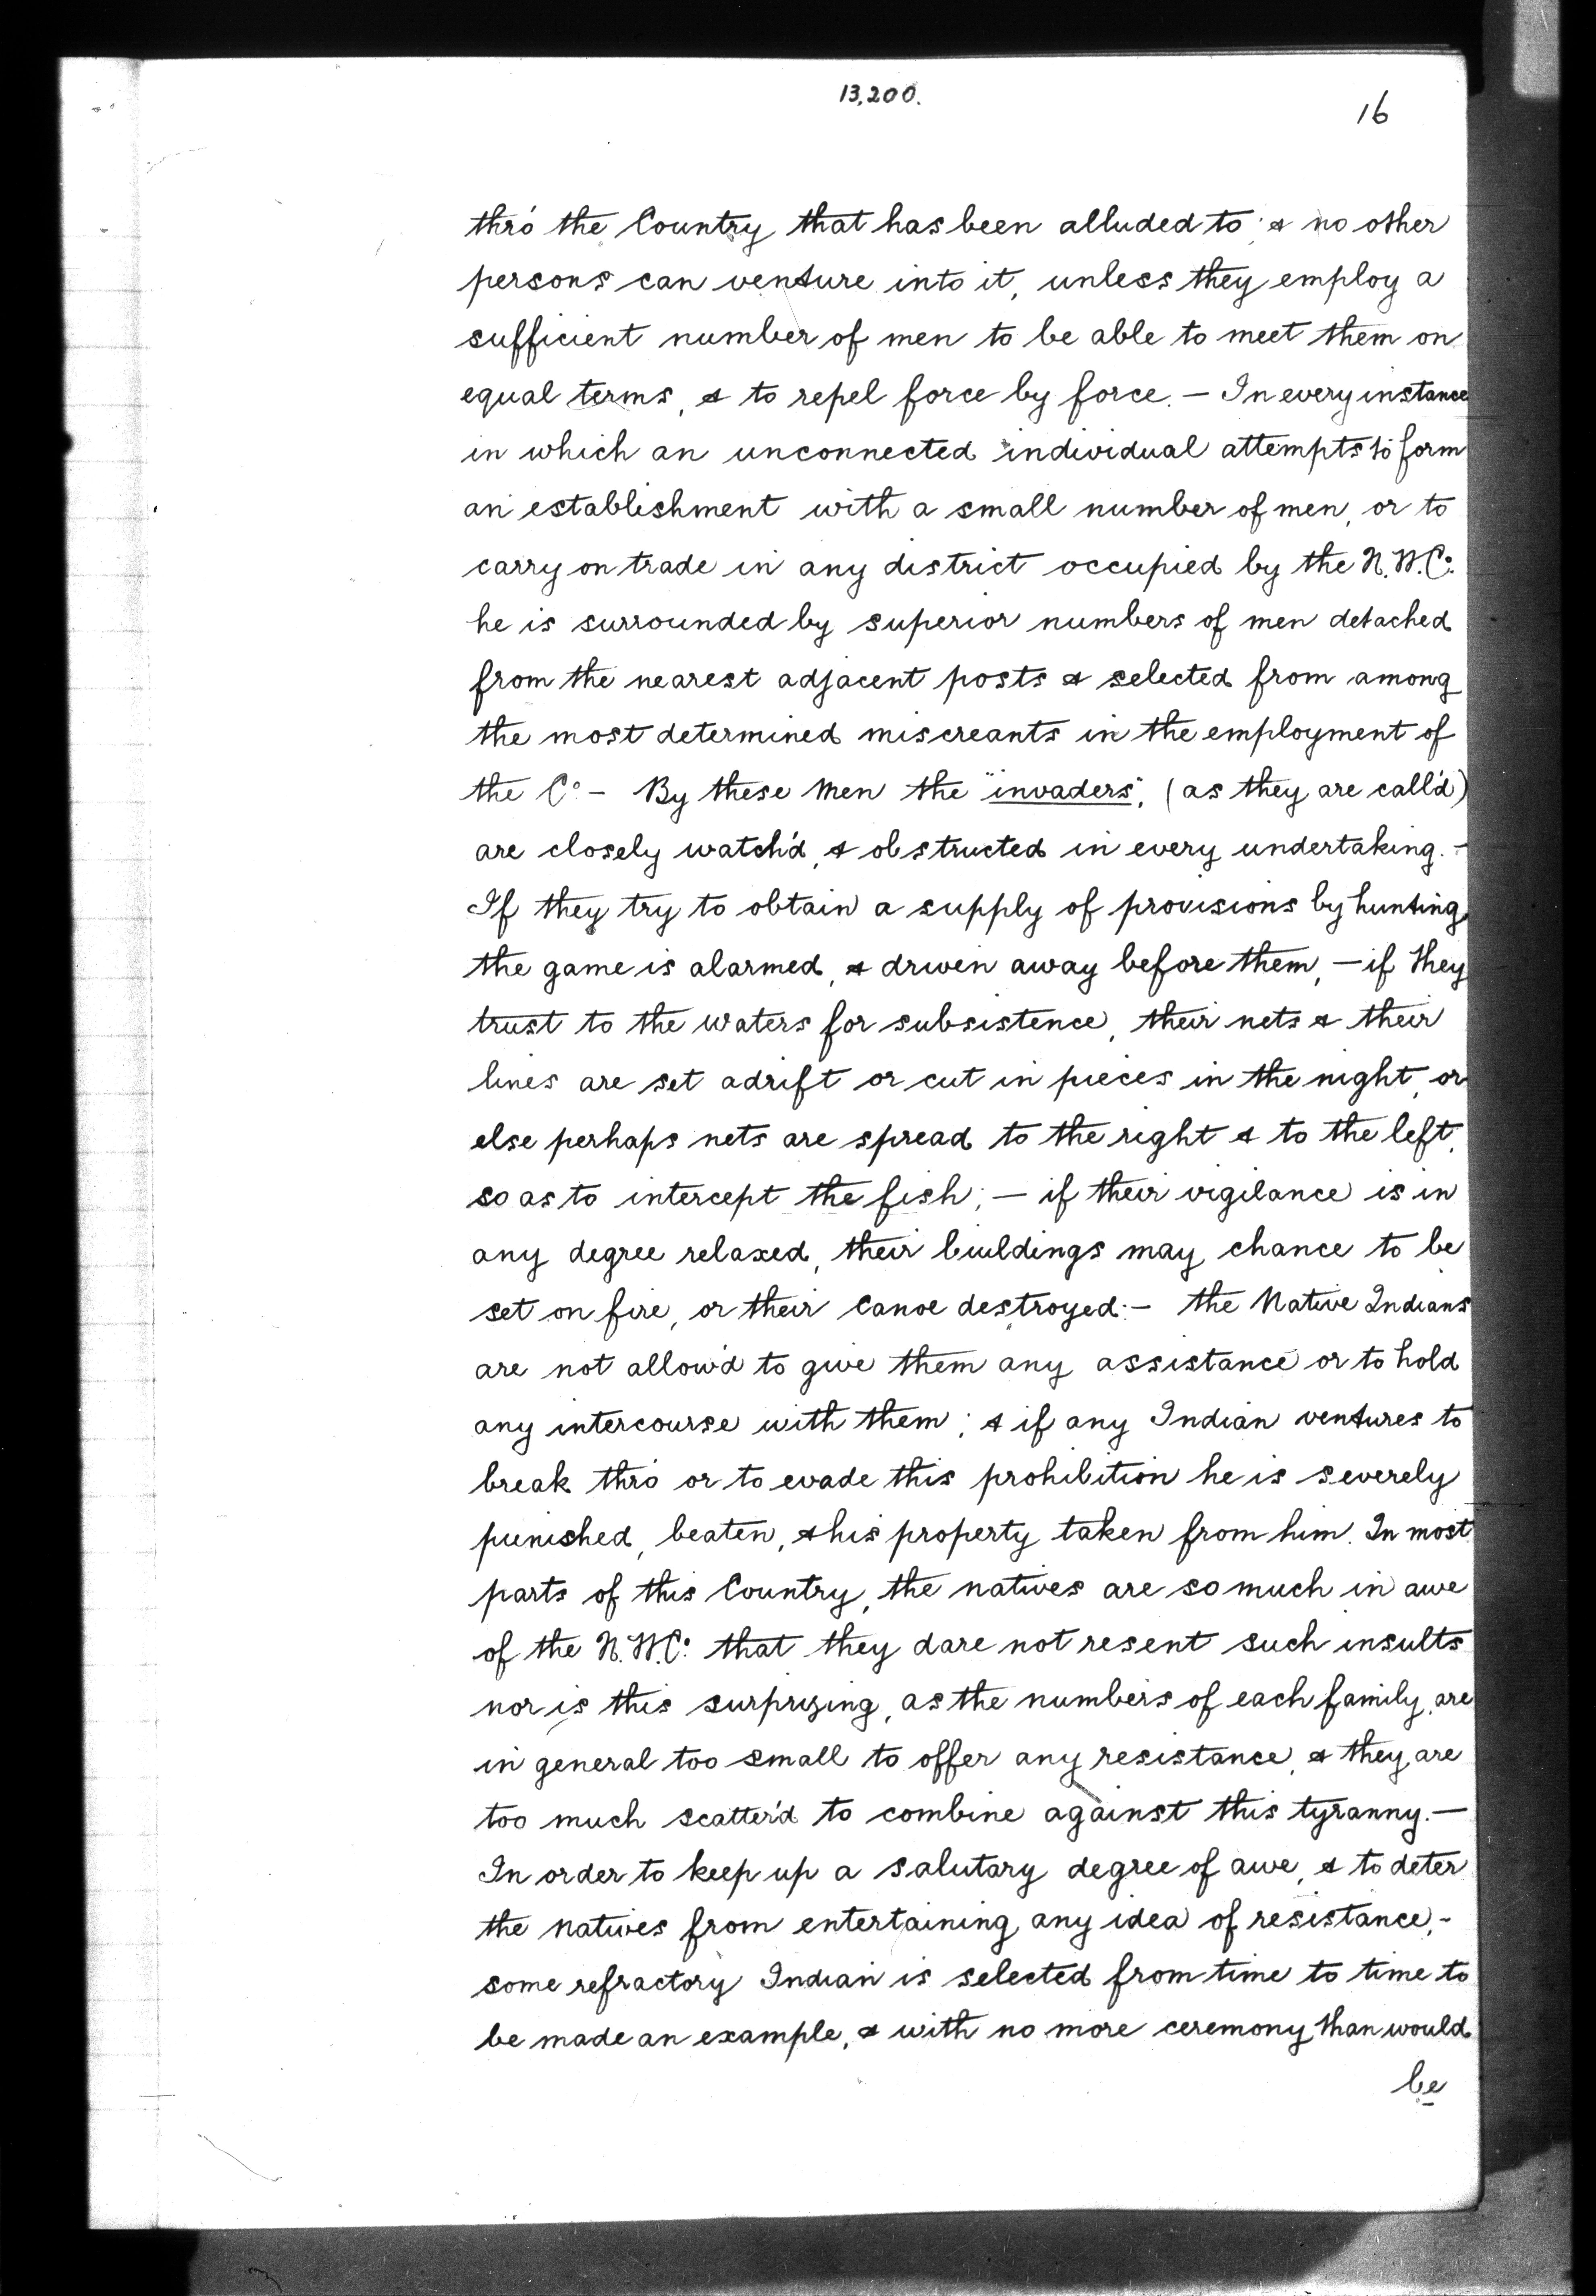 13,200.
16
thro' the Country that has been alluded to; & no other
persons can venture into it, unless they employ a
sufficient number of men to be able to meet them on
equal terms, & to repel force by force. — In every instance
in which an unconnected individual attempts to form
an establishment with a small number of men, or to
carry on trade in any district occupied by the N.W.Co.
he is surrounded by superior numbers of men detached
from the nearest adjacent posts & selected from among
the most determined miscreants in the employment of
the Co. – By these Men the "invaders", (as they are call'd)
are closely watch'd, & obstructed in every undertaking. –
If they try to obtain a supply of provisions by hunting,
the game is alarmed, & driven away before them, — if they
trust to the waters for subsistence, their nets & their
lines are set adrift or cut in pieces in the night, or
else perhaps nets are spread to the right & to the left,
so as to intercept the fish; — if their vigilance is in
any degree relaxed, their buildings may chance to be
set on fire, or their Canoe destroyed: – the Native Indians
are not allow'd to give them any assistance or to hold
any intercourse with them; & if any Indian ventures to
break thro' or to evade this prohibition he is severely
punished, beaten, & his property taken from him. In most
parts of this Country, the natives are so much in awe
of the N.W.Co. that they dare not resent such insults
nor is this surprizing, as the numbers of each family are
in general too small to offer any resistance, & they are
too much scatter'd to combine against this tyranny. —
In order to keep up a salutary degree of awe, & to deter
the Natives from entertaining any idea of resistance, –
some refractory Indian is selected from time to time to
be made an example, & with no more ceremony than would
be